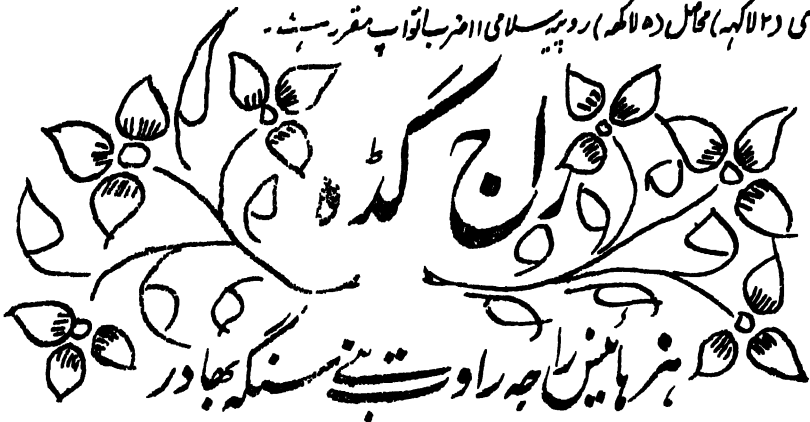 (۲ لاکہہ) محاصل (۵ لاکھہ) روپیہ سلامی ۱۱ ضرب اتواپ مقرر ہے۔
راج گڈہ
ہز ہائینس راجہ راوت بنے سنگہ بھادر